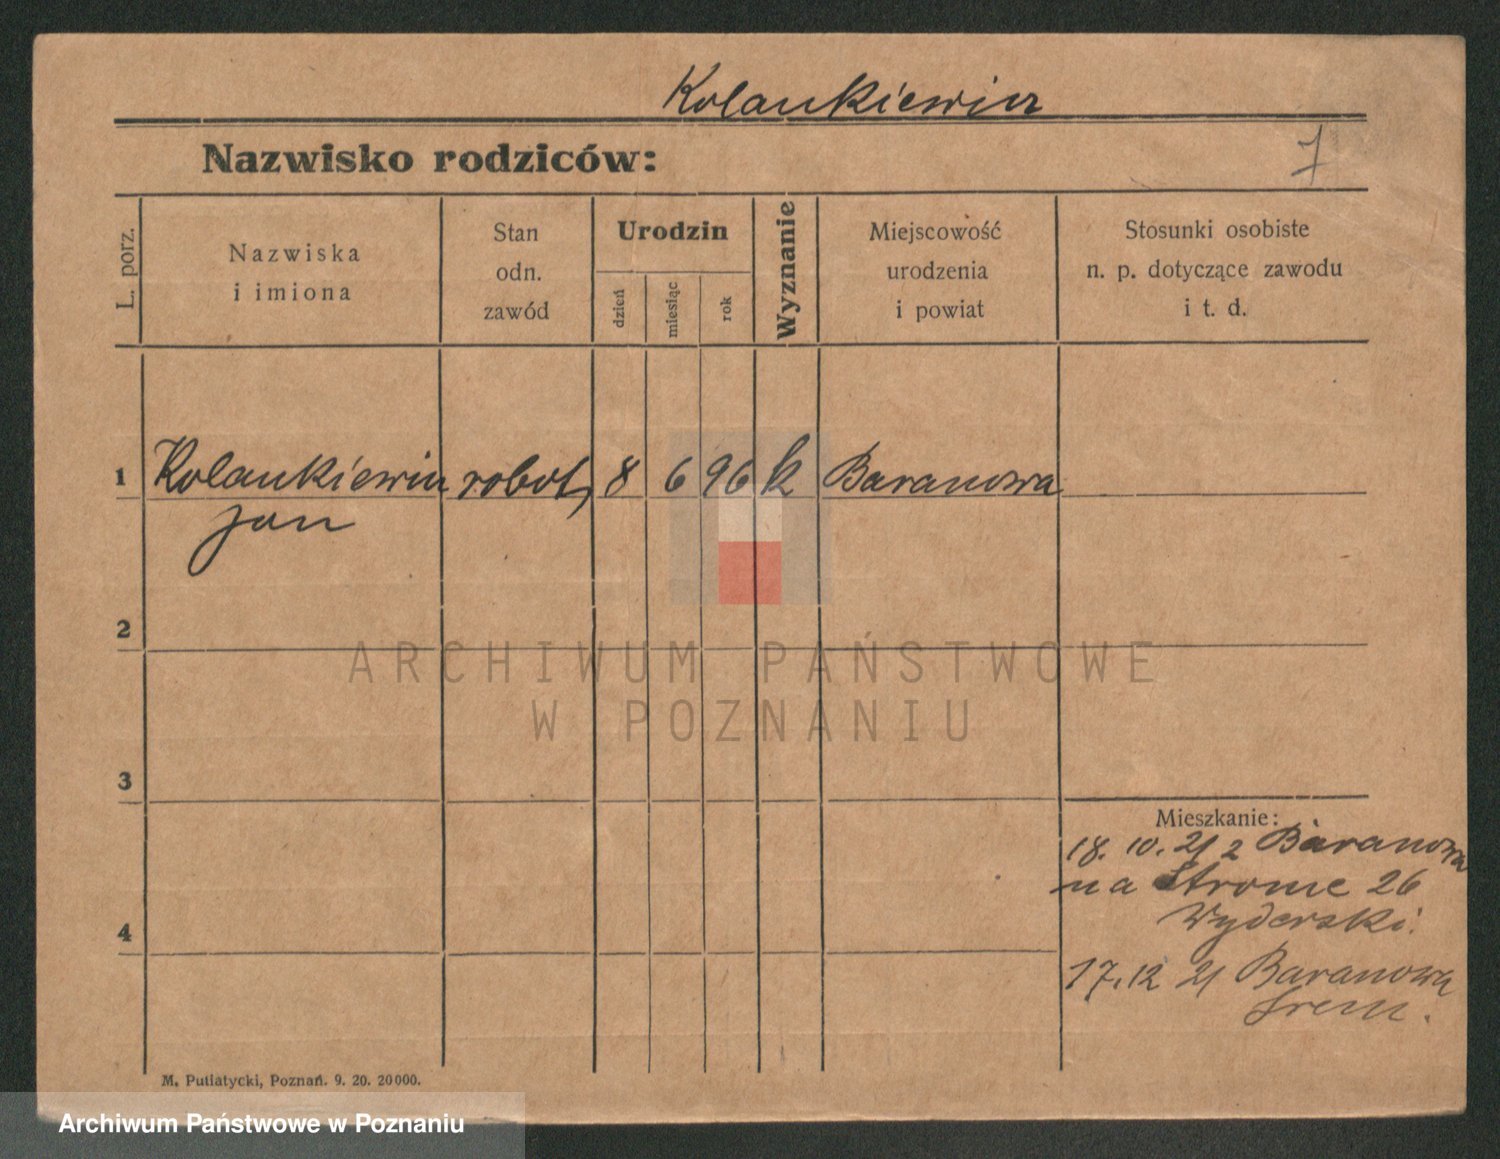 Kolankiewicz
Nazwisko rodziców:
7
L. porz.
Nazwiska
i imiona
Stan
odn.
zawód
Urodzin
dzień
miesiąc
rok
Wyznanie
Miejscowość
urodzenia
i powiat
Stosunki osobiste
n. p. dotyczące zawodu
i t. d.
1 Kolankiewicz robot, 8 6 96 k Baranowa
Jan
2
3
4
Mieszkanie:
18. 10. 21 z Baranowa
na Strome 26
Wyderski.
17.12 21 Baranowa
Srem.
M. Putiatycki, Poznań. 9. 20. 20000.
ARCHIWUM PAŃSTWOWE
W POZNANIU
Archiwum Państwowe w Poznaniu